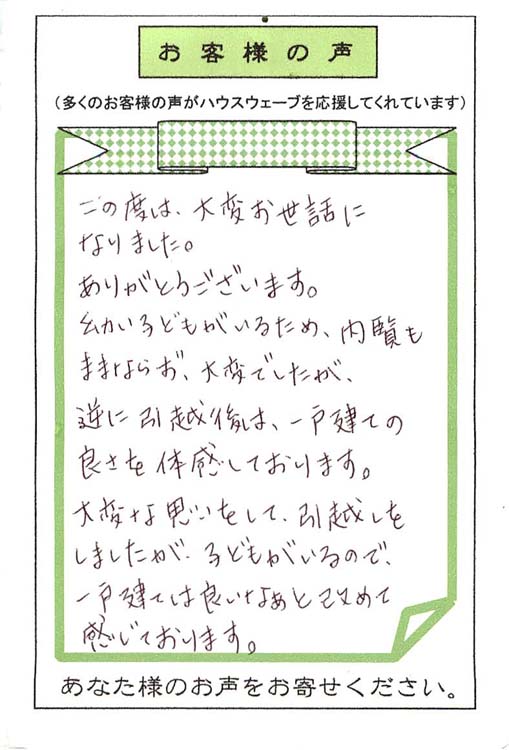 お客様の声
（多くのお客様の声がハウスウェーブを応援してくれています）
この度は、大変お世話に
なりました。
ありがとうございます。
幼い子どもがいるため、内覧も
ままならず、大変でしたが、
逆に引越後は、一戸建ての
良さを体感しております。
大変な思いをして、引越しを
しましたが、子どもがいるので、
一戸建ては良いなぁと改めて
感じております。
あなた様のお声をお寄せください。